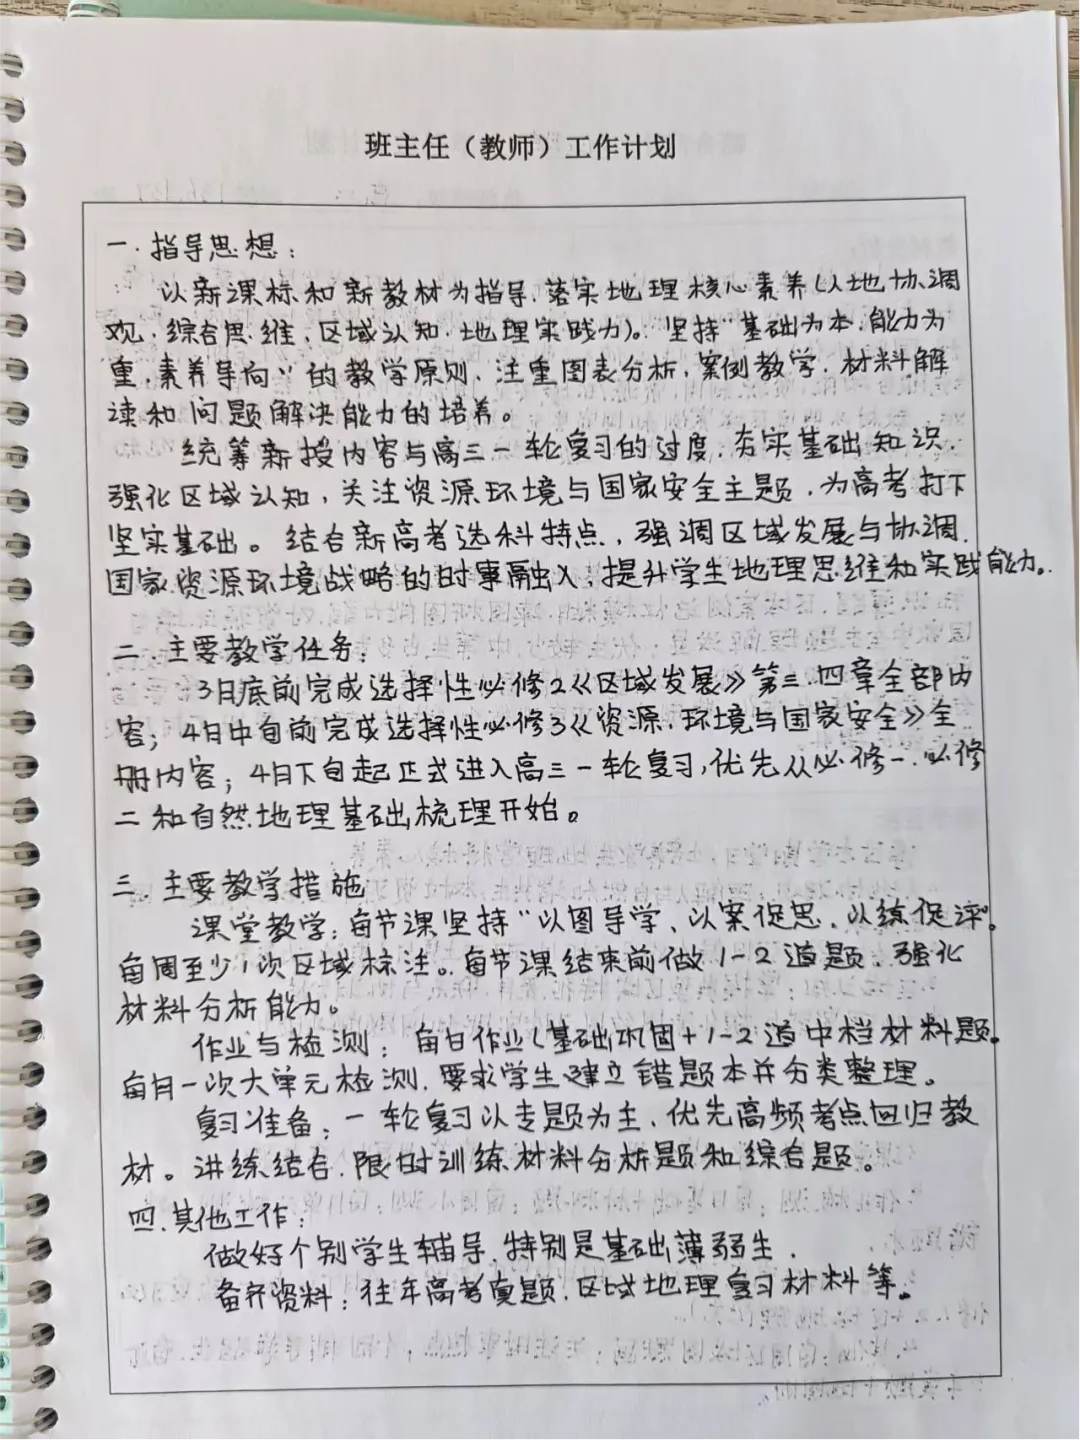 班主任（教师）工作计划
一.指导思想：
以新课标和新教材为指导.落实地理核心素养(人地协调
观.综合思维、区域认知.地理实践力)。坚持"基础为本.能力为
重.素养导向"的教学原则.注重图表分析.案例教学.材料解
读和问题解决能力的培养。
统筹新授内容与高三一轮复习的过度.夯实基础知识.
强化区域认知，关注资源环境与国家安全主题.为高考打下
坚实基础。结合新高考选科特点，强调区域发展与协调.
国家资源环境战略的时事融入，提升学生地理思维和实践能力.
二.主要教学任务：
3月底前完成选择性必修2《区域发展》第三.四章全部内
容；4月中旬前完成选择性必修3《资源.环境与国家安全》全
册内容；4月下旬起正式进入高三一轮复习,优先从必修一.必修
二和自然地理基础梳理开始。
三.主要教学措施
课堂教学：每节课坚持"以图导学、以案促思、以练促评"。
每周至少1次区域标注。每节课结束前做1-2道题.强化
材料分析能力。
作业与检测：每日作业(基础巩固+1-2道中档材料题.
每月一次大单元检测.要求学生建立错题本并分类整理。
复习准备：一轮复习以专题为主.优先高频考点回归教
材。讲练结合.限时训练材料分析题和综合题。
四.其他工作：
做好个别学生辅导.特别是基础薄弱生.
备齐资料：往年高考真题.区域地理复习材料等。